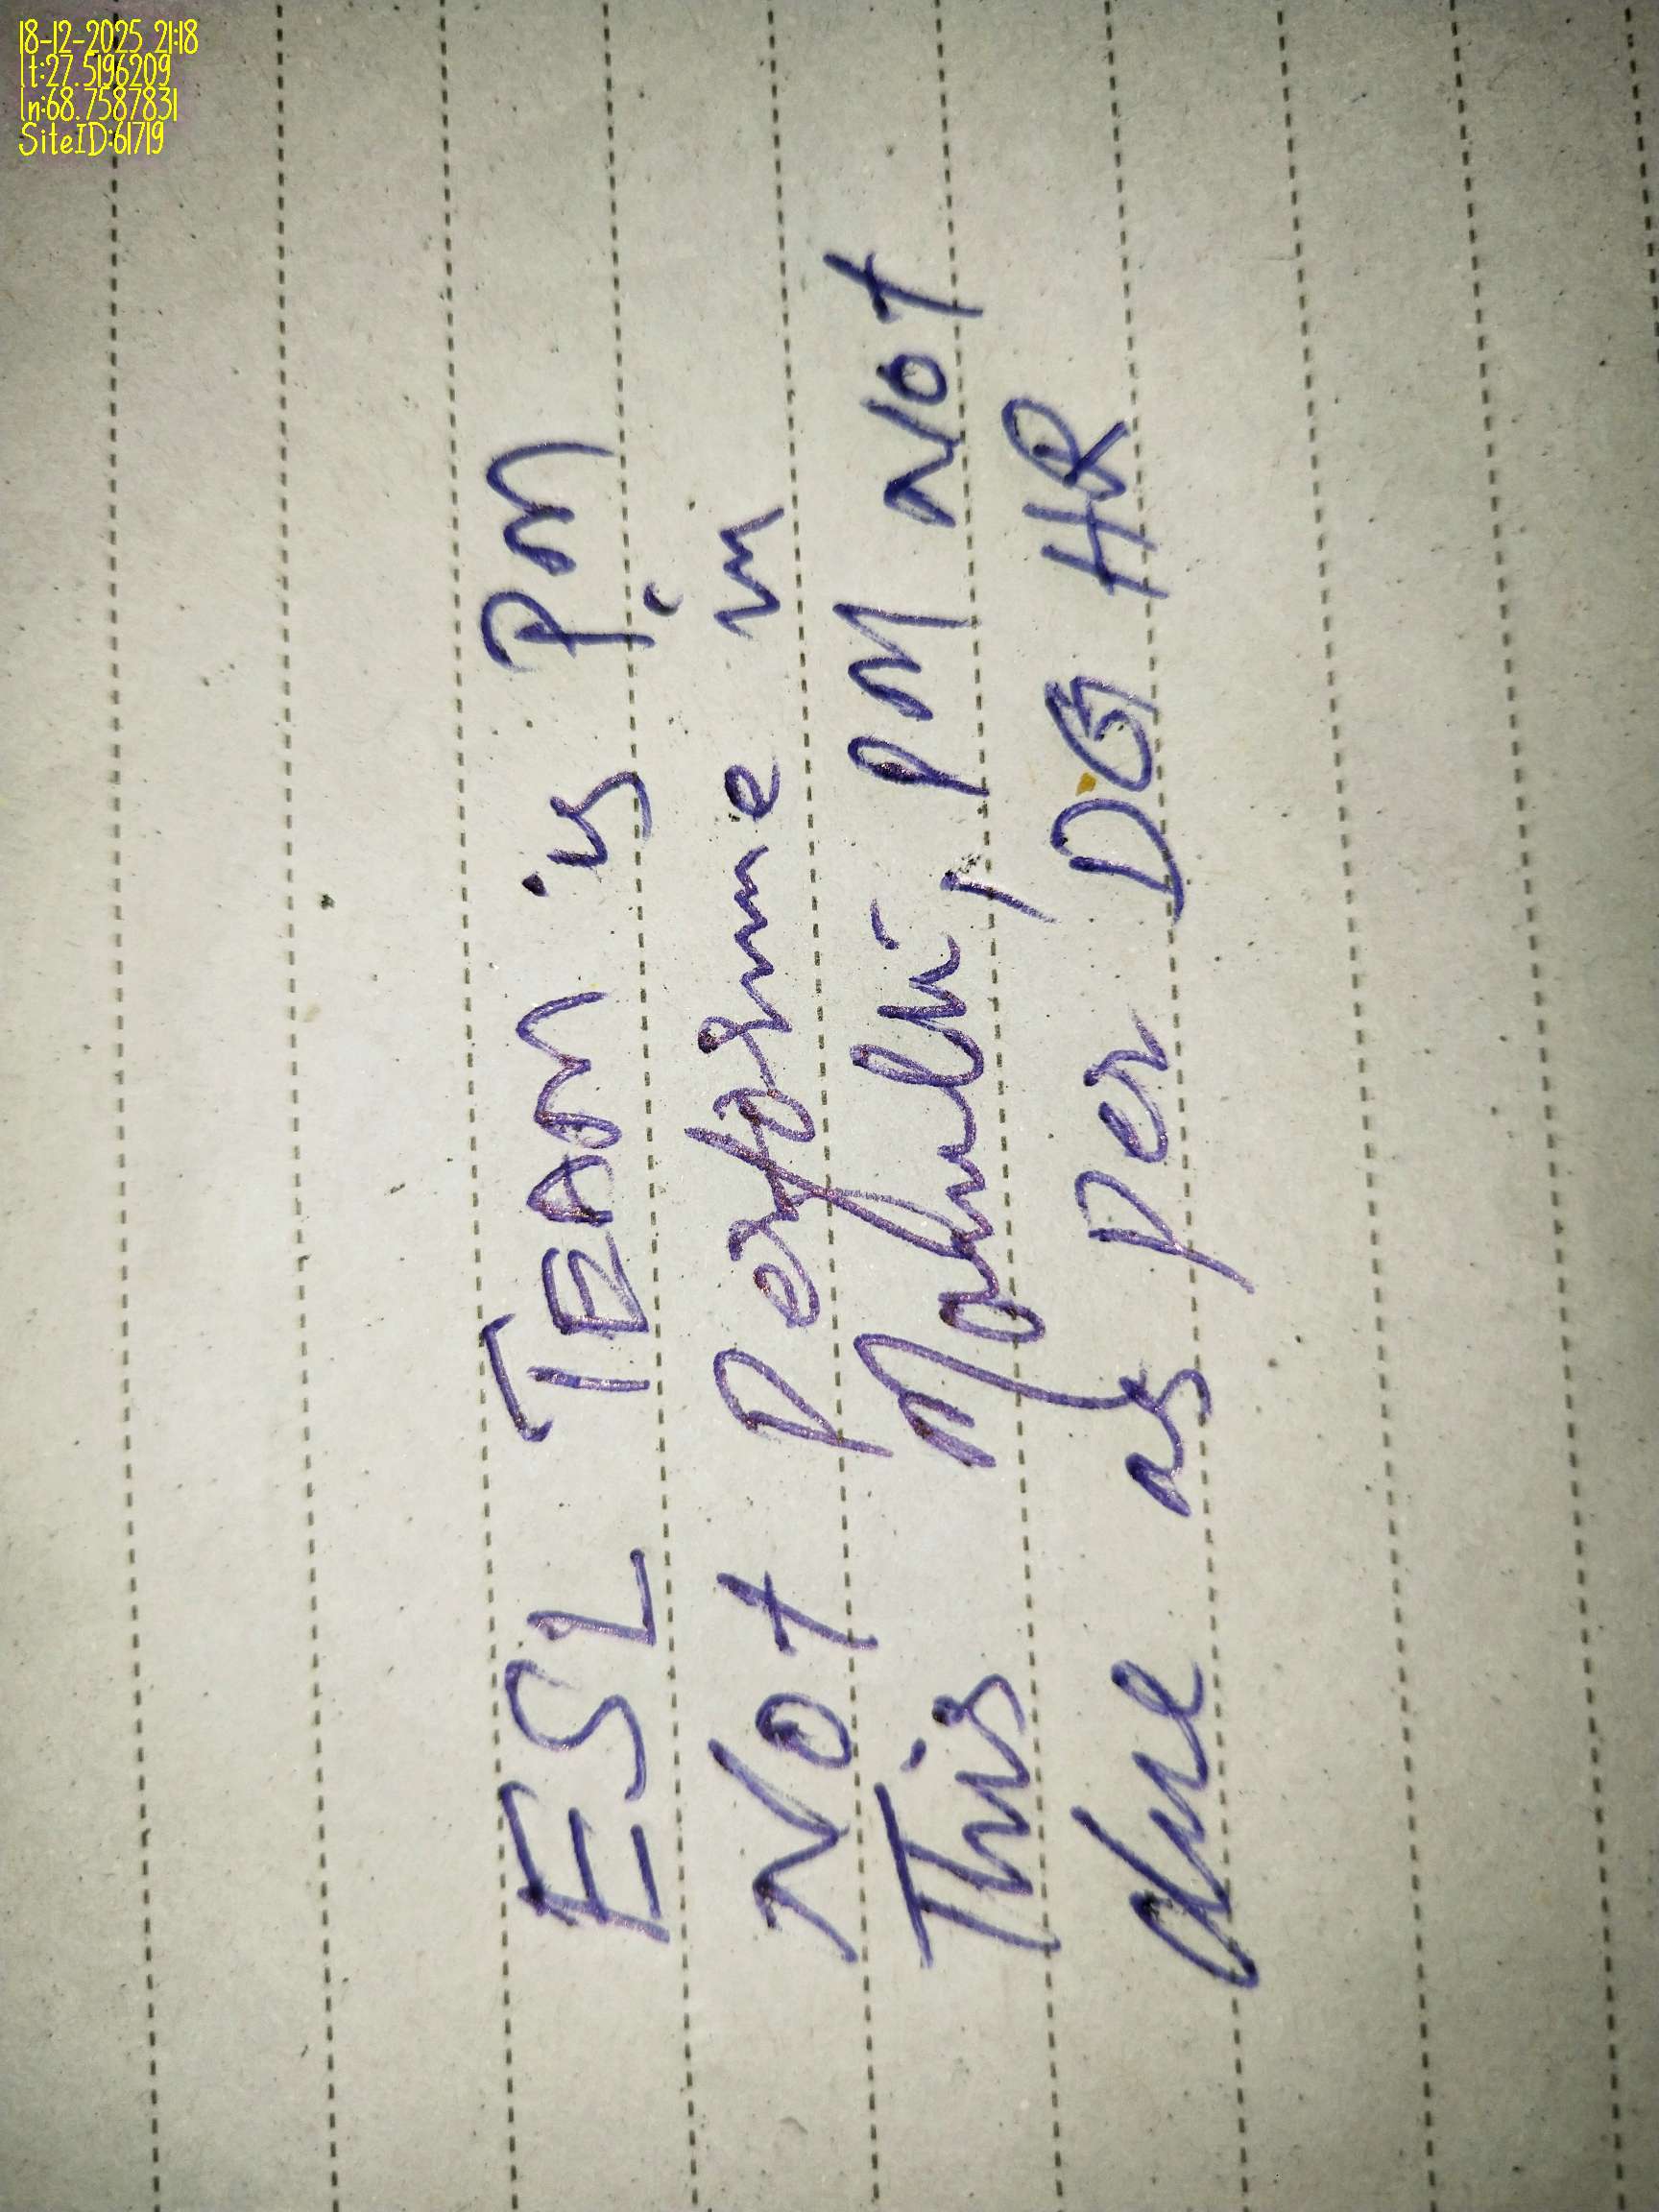 18-12-2025 21:18
lt:27.5196209
ln:68.7587831
SiteID:61719
ESL TEAM is PM
Not Performme in
This PM Not
due as per DG HR